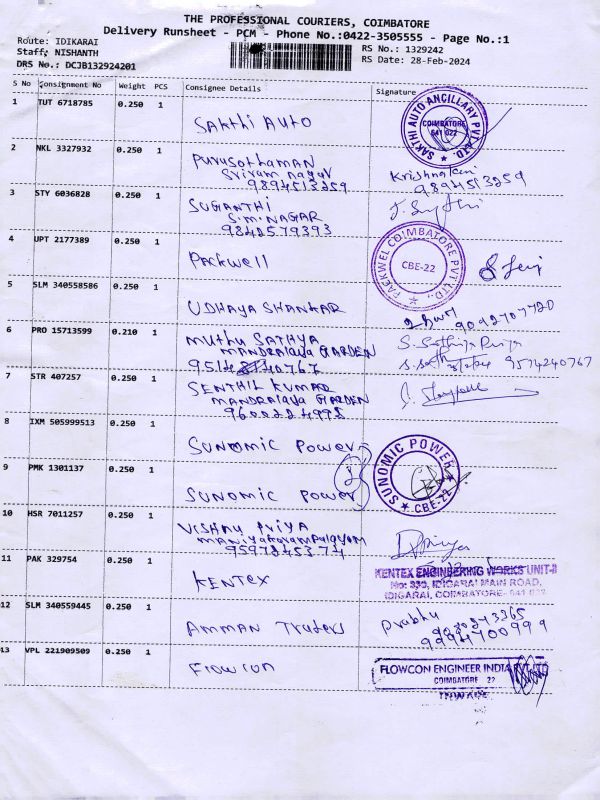 THE PROFESSIONAL COURIERS, COIMBATORE
Delivery Runsheet - PCM - Phone No.:0422-3505555 - Page No.:1
Route: IDIKARAI
Staff: NISHANTH
DRS No.: DCJB132924201
RS No.: 1329242
RS Date: 28-Feb-2024
S No Consignment No Weight PCS Consignee Details Signature
1 TUT 6718785 0.250 1 Sakthi Auto
SAKTHI AUTO ANCILLARY PVT. LTD. COIMBATORE 641 022
2 NKL 3327932 0.250 1 Purusothaman
Sriram nagar
9894513259
Krishnaveni
9894513259
3 STY 6036828 0.250 1 SUGANTHI
S.M. NAGAR
9842579393
4 UPT 2177389 0.250 1 Packwell
PACKWEL COIMBATORE PVT LTD., CBE-22
5 SLM 340558586 0.250 1 UDHAYA SHANKAR
9092707720
6 PRO 15713599 0.210 1 Muthu SATHYA
MANDRALAYA GARDEN
S. Sathiya Priya
9574240767
7 STR 407257 0.250 1 SENTHIL KUMAR
MANDRALAYA GARDEN
9600224998
8 IXM 505999513 0.250 1 Sunomic Power
9 PMK 1301137 0.250 1 Sunomic Power
SUNOMIC POWER CBE-22
10 HSR 7011257 0.250 1 Vishnu Priya
Maniyakarampalayam
9597845374
11 PAK 329754 0.250 1 Kentex
KENTEX ENGINEERING WORKS UNIT-II
No: 333, IDIGARAI MAIN ROAD,
IDIGARAI, COIMBATORE- 641 022
12 SLM 340559445 0.250 1 Amman Traders
Prabhu
9994700999
13 VPL 221909509 0.250 1 Flowcon
FLOWCON ENGINEER INDIA PVT LTD
COIMBATORE 22